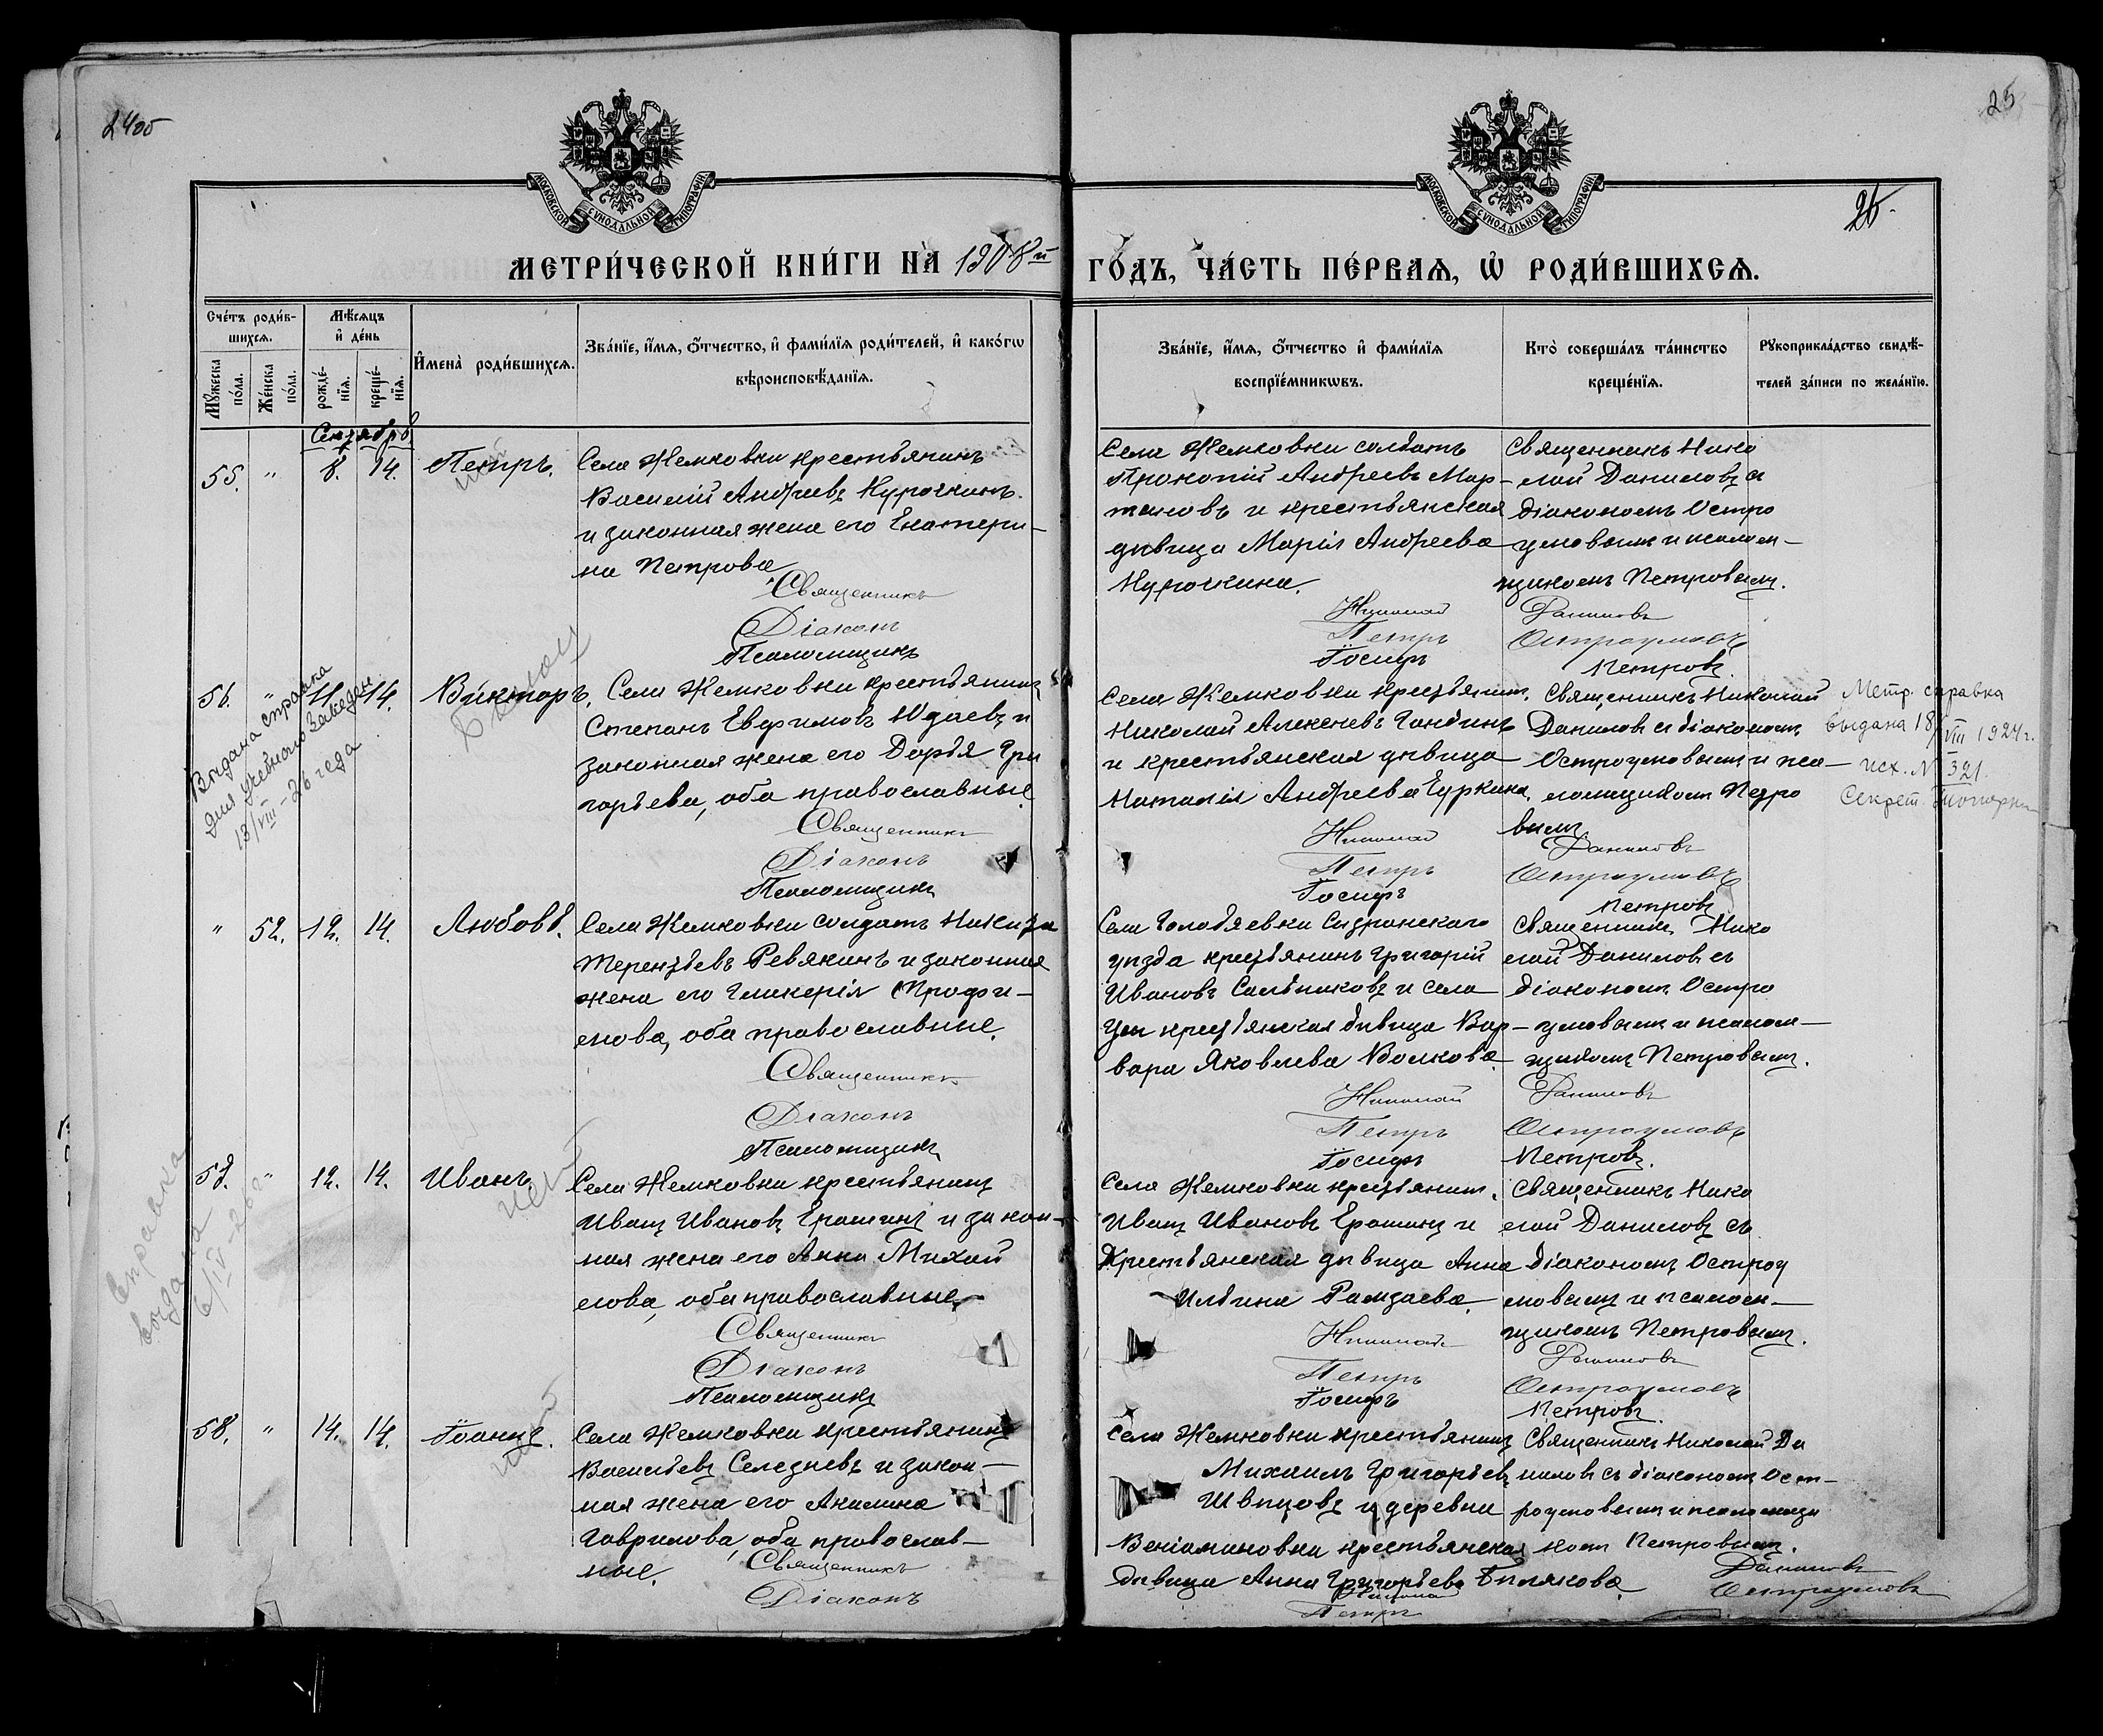 24об
25
25.
МОСКОВСКОЙ СѴНОДАЛЬНОЙ ТИПОГРАФИИ
МОСКОВСКОЙ СѴНОДАЛЬНОЙ ТИПОГРАФИИ
МЕТРИ́ЧЕСКОЙ КНИ́ГИ НА 1908й ГО́ДЪ, ЧА́СТЬ ПЕ́РВАѦ, Ѡ РОДИ́ВШИХСѦ.
Сче́тъ роди́в-
шихсѧ.
Мꙋ́жеска по́ла.
Же́нска по́ла.
Мѣ́сѧцъ
и҆ де́нь
рожде́-
нїѧ.
креще́-
нїѧ.
И҆мена̀ роди́вшихсѧ.
Зва́нїе, и҆́мѧ, ѻ҆́тчество, и҆ фами́лїѧ роди́телей, и҆ како́гѡ
вѣроисповѣ́данїѧ.
Зва́нїе, и҆́мѧ, ѻ҆́тчество и҆ фами́лїѧ
воспрїе́мникѡвъ.
Кто̀ соверша́лъ та́инство
креще́нїѧ.
Рꙋкоприкла́дство свидѣ́-
телей за́писи по жела́нїю.
Сентябрь
55. " 8. 14. Петръ.
Села Жемковки крестьянинъ
Василій Андреевъ Курочкинъ
и законная жена его Екатери-
на Петрова
Священникъ
Діаконъ
Псаломщикъ
Села Жемковки солдатъ
Прокопій Андреевъ Мар-
тыновъ и крестьянская
дѣвица Марія Андреева
Курочкина.
Николай
Петръ
Іосифъ
Священникъ Нико
лай Даниловъ съ
діакономъ Остро
умовымъ и псалом-
щикомъ Петровымъ.
Даниловъ
Остроумовъ
Петровъ
56. " 11. 14. Викторъ.
Выдана справка
для учебного заведен.
13/VIII-26 года
Села Жемковки крестьянинъ
Степанъ Евфимовъ Юдаевъ и
законная жена его Дарья Гри
горьева, оба православные.
Священникъ
Діаконъ
Псаломщикъ
Села Жемковки крестьянинъ
Николай Алексеевъ Гандинъ
и крестьянская дѣвица
Наталія Андреева Чуркина.
Николай
Петръ
Іосифъ
Священникъ Николай
Даниловъ съ діакономъ
Остроумовымъ и пса-
ломщикомъ Петро
вымъ
Даниловъ
Остроумовъ
Петровъ
Метр. справка
выдана 18/VIII 1924 г.
исх. № 321.
Секрет.
" 52. 12. 14. Любовь.
Села Жемковки солдатъ Никита
Терентьевъ Ревякинъ и законная
жена его Гликерія Трофи-
мова, оба православные.
Священникъ
Діаконъ
Псаломщикъ
Села Голодяевки Сызранского
уѣзда крестьянинъ Григорій
Ивановъ Сальниковъ и села
Уси крестьянская дѣвица Вар-
вара Яковлева Волкова.
Николай
Петръ
Іосифъ
Священникъ Нико
лай Даниловъ съ
діакономъ Остро
умовымъ и псалом-
щикомъ Петровымъ.
Даниловъ
Остроумовъ
Петровъ.
57. " 12. 14. Иванъ.
Справка
выдана
6/IV-26г.
Села Жемковки крестьянинъ
Иванъ Ивановъ Ерашинъ и закон-
ная жена его Анна Михай
лова, оба православные
Священникъ
Діаконъ
Псаломщикъ
Села Жемковки крестьянинъ
Иванъ Ивановъ Ерашинъ и
Крестьянская дѣвица Анна
Ильина Рамзаева.
Николай
Петръ
Іосифъ
Священникъ Нико
лай Даниловъ съ
діакономъ Остроу
мовымъ и псалом-
щикомъ Петровымъ.
Даниловъ
Остроумовъ
Петровъ.
58. " 14. 14. Іоаннъ.
Села Жемковки крестьянинъ
Васильевъ Селезневъ и закон-
ная жена его Акилина
Гаврилова, оба православ-
ные.
Священникъ
Діаконъ
Села Жемковки крестьянинъ
Михаилъ Григорьевъ
Швецовъ и деревни
Веніаминовки крестьянская
дѣвица Анна Григорьева Билякова
Николай
Петръ
Священникъ Николай Да
ниловъ съ діакономъ Ост-
роумовымъ и псаломщи
комъ Петровымъ.
Даниловъ
Остроумовъ